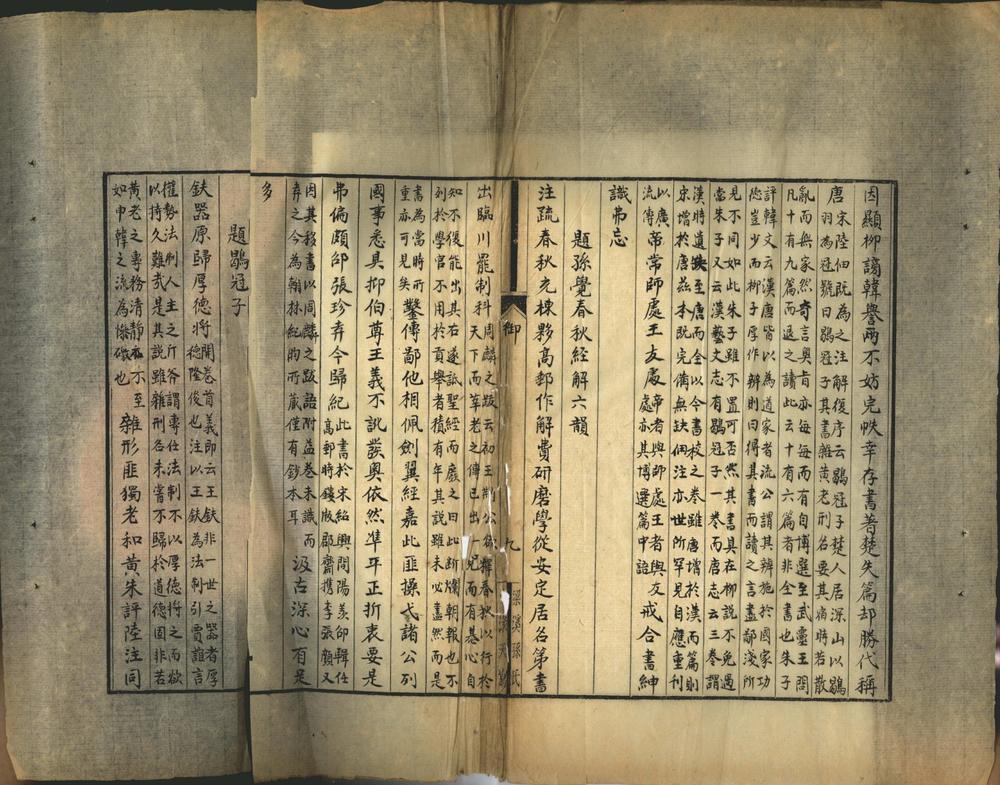 因顯柳謗韓譽兩不妨完帙幸存書著楚失篇却勝代稱
唐
宋陸佃既為之注解復序云鶡冠子楚人居深山以鶡
羽為冠號曰鶡冠子其書雜黃老刑名要其宿時若散
亂而無家然奇言奥旨亦每每而有自博選至武靈王問
凡十有九篇而退之讀此云十有六篇者非全書也朱子
評韓文云漢唐皆以為道家者流公謂其辨施於國家功
德豈少而柳子厚作辨則曰得其書而讀之言盡鄙淺所
見不同如此朱子雖不置可否然其書具在柳說不免過
當朱子又云漢藝文志有鶡冠子一卷而唐志云三卷謂
漢時遺缺至唐而全以今書校之卷雖唐增於漢而篇則
宋增於唐茲本既完備無缺佃注亦世所罕見自應重刊
以廣
流傳
帝常師處王友處
帝者與師處王者與友
處亦其博選篇中語
戒合書紳
識弗忘
題孫覺春秋經解六韻
注疏春秋充棟夥高郵作解費研磨學從安定居名第書
御
九
出臨川罷制科
周麟之跋云初王荊公欲釋春秋以行於
天下而莘老之傳已出一見而有惎心自
知不復能出其右遂詆聖經而廢之曰此斷爛朝報也不
列於學官不用於貢舉者積有年其說雖未必盡然而是
書為當時所
重亦可見矣
鑿傳鄙他相佩劍翼經嘉此匪操戈諸公列
國事悉具抑伯尊王義不訛奥依然準平正折衷要是
弗偏頗邵張珍弆今歸紀
此書於宋紹興間陽羡邵輯任
高郵時鏤版郡齋携李張顏又
因其移書以同麟之跋語附益卷末識而
弆之今為翰林紀昀所藏僅有鈔本耳
汲古深心有是
多
題鶡冠子
鈇器原歸厚德將
開卷首義即云王鈇非一世之器者厚
德隆俊也注以王鈇為法制引賈誼言
權勢法制人主之斤斧謂專任法制不以厚德將之而欲
以持久難哉是其說雖雜刑名未嘗不歸於道德固非若
黃老之專務清靜亦不至
如申韓之流為慘礉也
雜形匪獨老和黃朱評陸注同